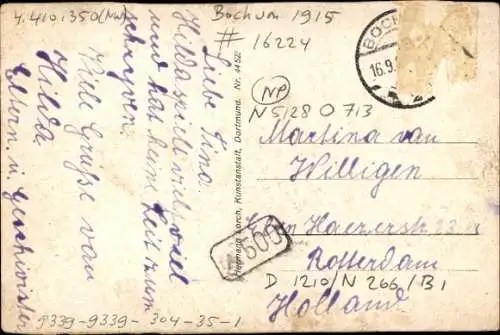 4.410.350 (NW)
Bochum 1915
# 16224
BOCH
16.9.
Liebe Tina.
Hilda spielt viel viel
und hat keine Zeit zum
schreyven.
Viele Grüße von
Hilda
Eltern, u Geschwister
Hermann Lorch, Kunstanstalt, Dortmund. Nr. 4452
NP
N 5128 O 713
Martina van
Willigen
Haezerstr
Rotterdam
D 1210/N 266/B1
Holland
500
9339-9339-304-35-1